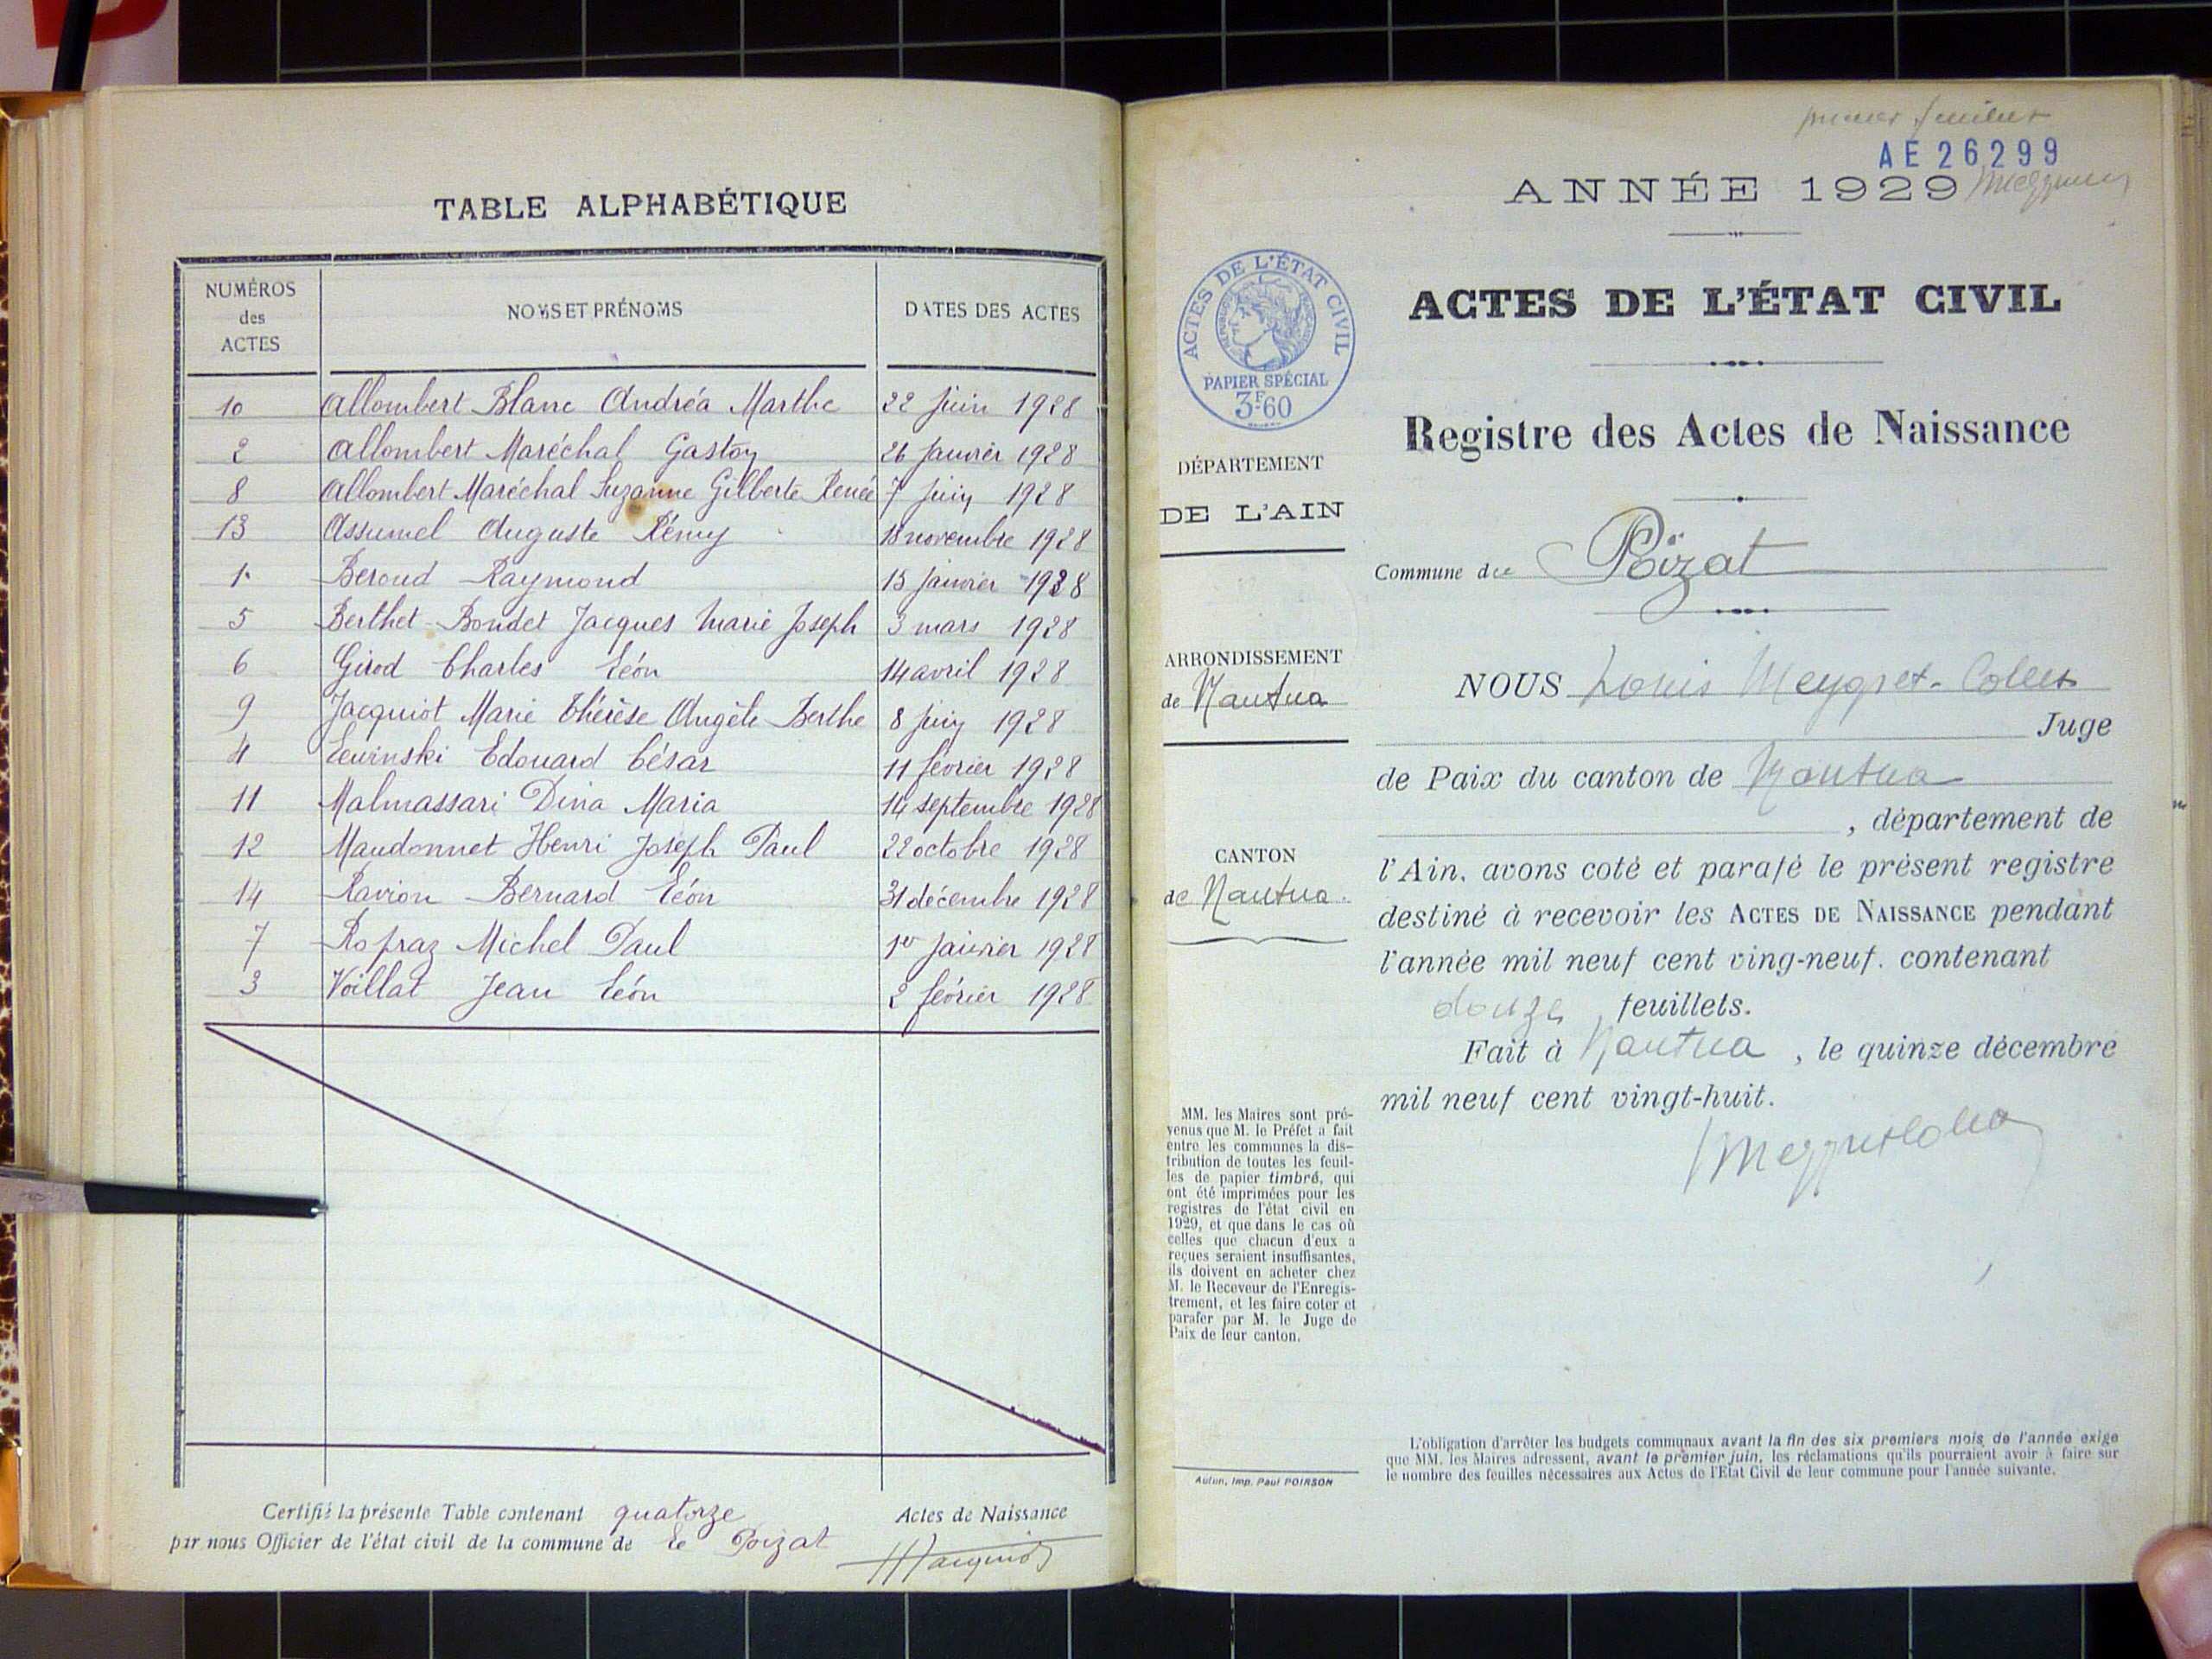 TABLE ALPHABÉTIQUE
NUMÉROS des ACTES NOMS ET PRÉNOMS DATES DES ACTES
10 Allombert Blanc Andréa Marthe 22 Juin 1928
2 Allombert Maréchal Gaston 26 Janvier 1928
8 Allombert Maréchal Suzanne Gilberte Renée 7 Juin 1928
13 Assumel Auguste Rémy 18 novembre 1928
1 Beroud Raymond 15 Janvier 1928
5 Berthet-Bondet Jacques Marie Joseph 3 mars 1928
6 Girod Charles Léon 14 avril 1928
9 Jacquiot Marie Thérèse Angèle Berthe 8 Juin 1928
4 Lewinski Edouard César 11 février 1928
11 Malmassari Dina Maria 14 septembre 1928
12 Maudonnet Henri Joseph Paul 22 octobre 1928
14 Ravion Bernard Léon 31 décembre 1928
7 Rofraz Michel Paul 1er Janvier 1928
3 Voillat Jean Léon 2 février 1928
Certifié la présente Table contenant quatorze Actes de Naissance
par nous Officier de l'état civil de la commune de Le Poizat
premier feuillet
AE 26299
ANNÉE 1929
ACTES DE L'ÉTAT CIVIL
PAPIER SPÉCIAL
3F60
ACTES DE L'ÉTAT CIVIL
Registre des Actes de Naissance
DÉPARTEMENT
DE L'AIN
Commune du Poizat
ARRONDISSEMENT
de Nantua
CANTON
de Nantua.
NOUS Louis Meygret-Collet
Juge
de Paix du canton de Nantua
, département de
l'Ain, avons coté et parafé le présent registre
destiné à recevoir les ACTES DE NAISSANCE pendant
l'année mil neuf cent ving-neuf. contenant
douze feuillets.
Fait à Nantua, le quinze décembre
mil neuf cent vingt-huit.
MM. les Maires sont pré-
venus que M. le Préfet a fait
entre les communes la dis-
tribution de toutes les feuil-
les de papier timbré, qui
ont été imprimées pour les
registres de l'état civil en
1929, et que dans le cas où
celles que chacun d'eux a
reçues seraient insuffisantes,
ils doivent en acheter chez
M. le Receveur de l'Enregis-
trement, et les faire coter et
parafer par M. le Juge de
Paix de leur canton.
Autun, Imp. Paul POIRSON
L'obligation d'arrêter les budgets communaux avant la fin des six premiers mois de l'année exige
que MM. les Maires adressent, avant le premier juin, les réclamations qu'ils pourraient avoir à faire sur
le nombre des feuilles nécessaires aux Actes de l'Etat Civil de leur commune pour l'année suivante.